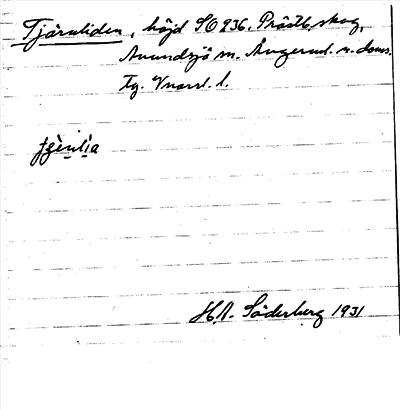 Tjärnliden, höjd SO 236. Prästb.skog,
Anundsjö sn. Ångerml. n. doms.
Fg. Vnorrl. l.
H.A. Söderberg 1931